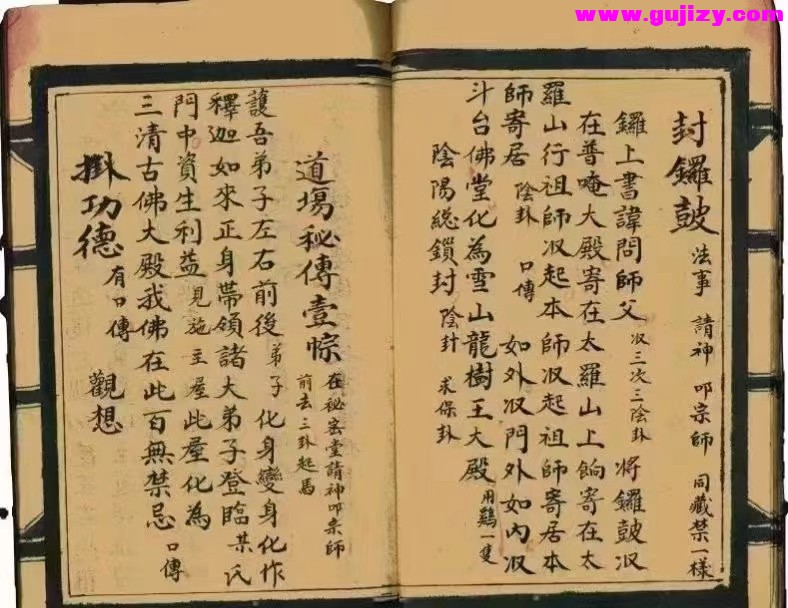 www.gujizy.com
封鑼鼓 法事 請神 叩宗師 同藏禁一樣
鑼上書諱問師父 収三次三陰卦 将鑼鼓収
在普唵大殿寄在太羅山上餉寄在太
羅山行祖師収起本師収起祖師寄居本
師寄居 陰卦 口傳 如外収門外如内収
斗台佛堂化為雪山龍樹王大殿 用鷄一隻
陰陽総鎖封 陰封 求保卦
道塲秘傳壹悰 在祕密堂請神叩宗師
前去三卦起馬
護吾弟子左右前後 弟子 化身變身化作
釋迦如來正身帶領諸大弟子登臨 某氏
門中資生利益 見施主屋此屋化為
三清古佛大殿我佛在此百無禁忌 口傳
掛功德 有口傳 觀想